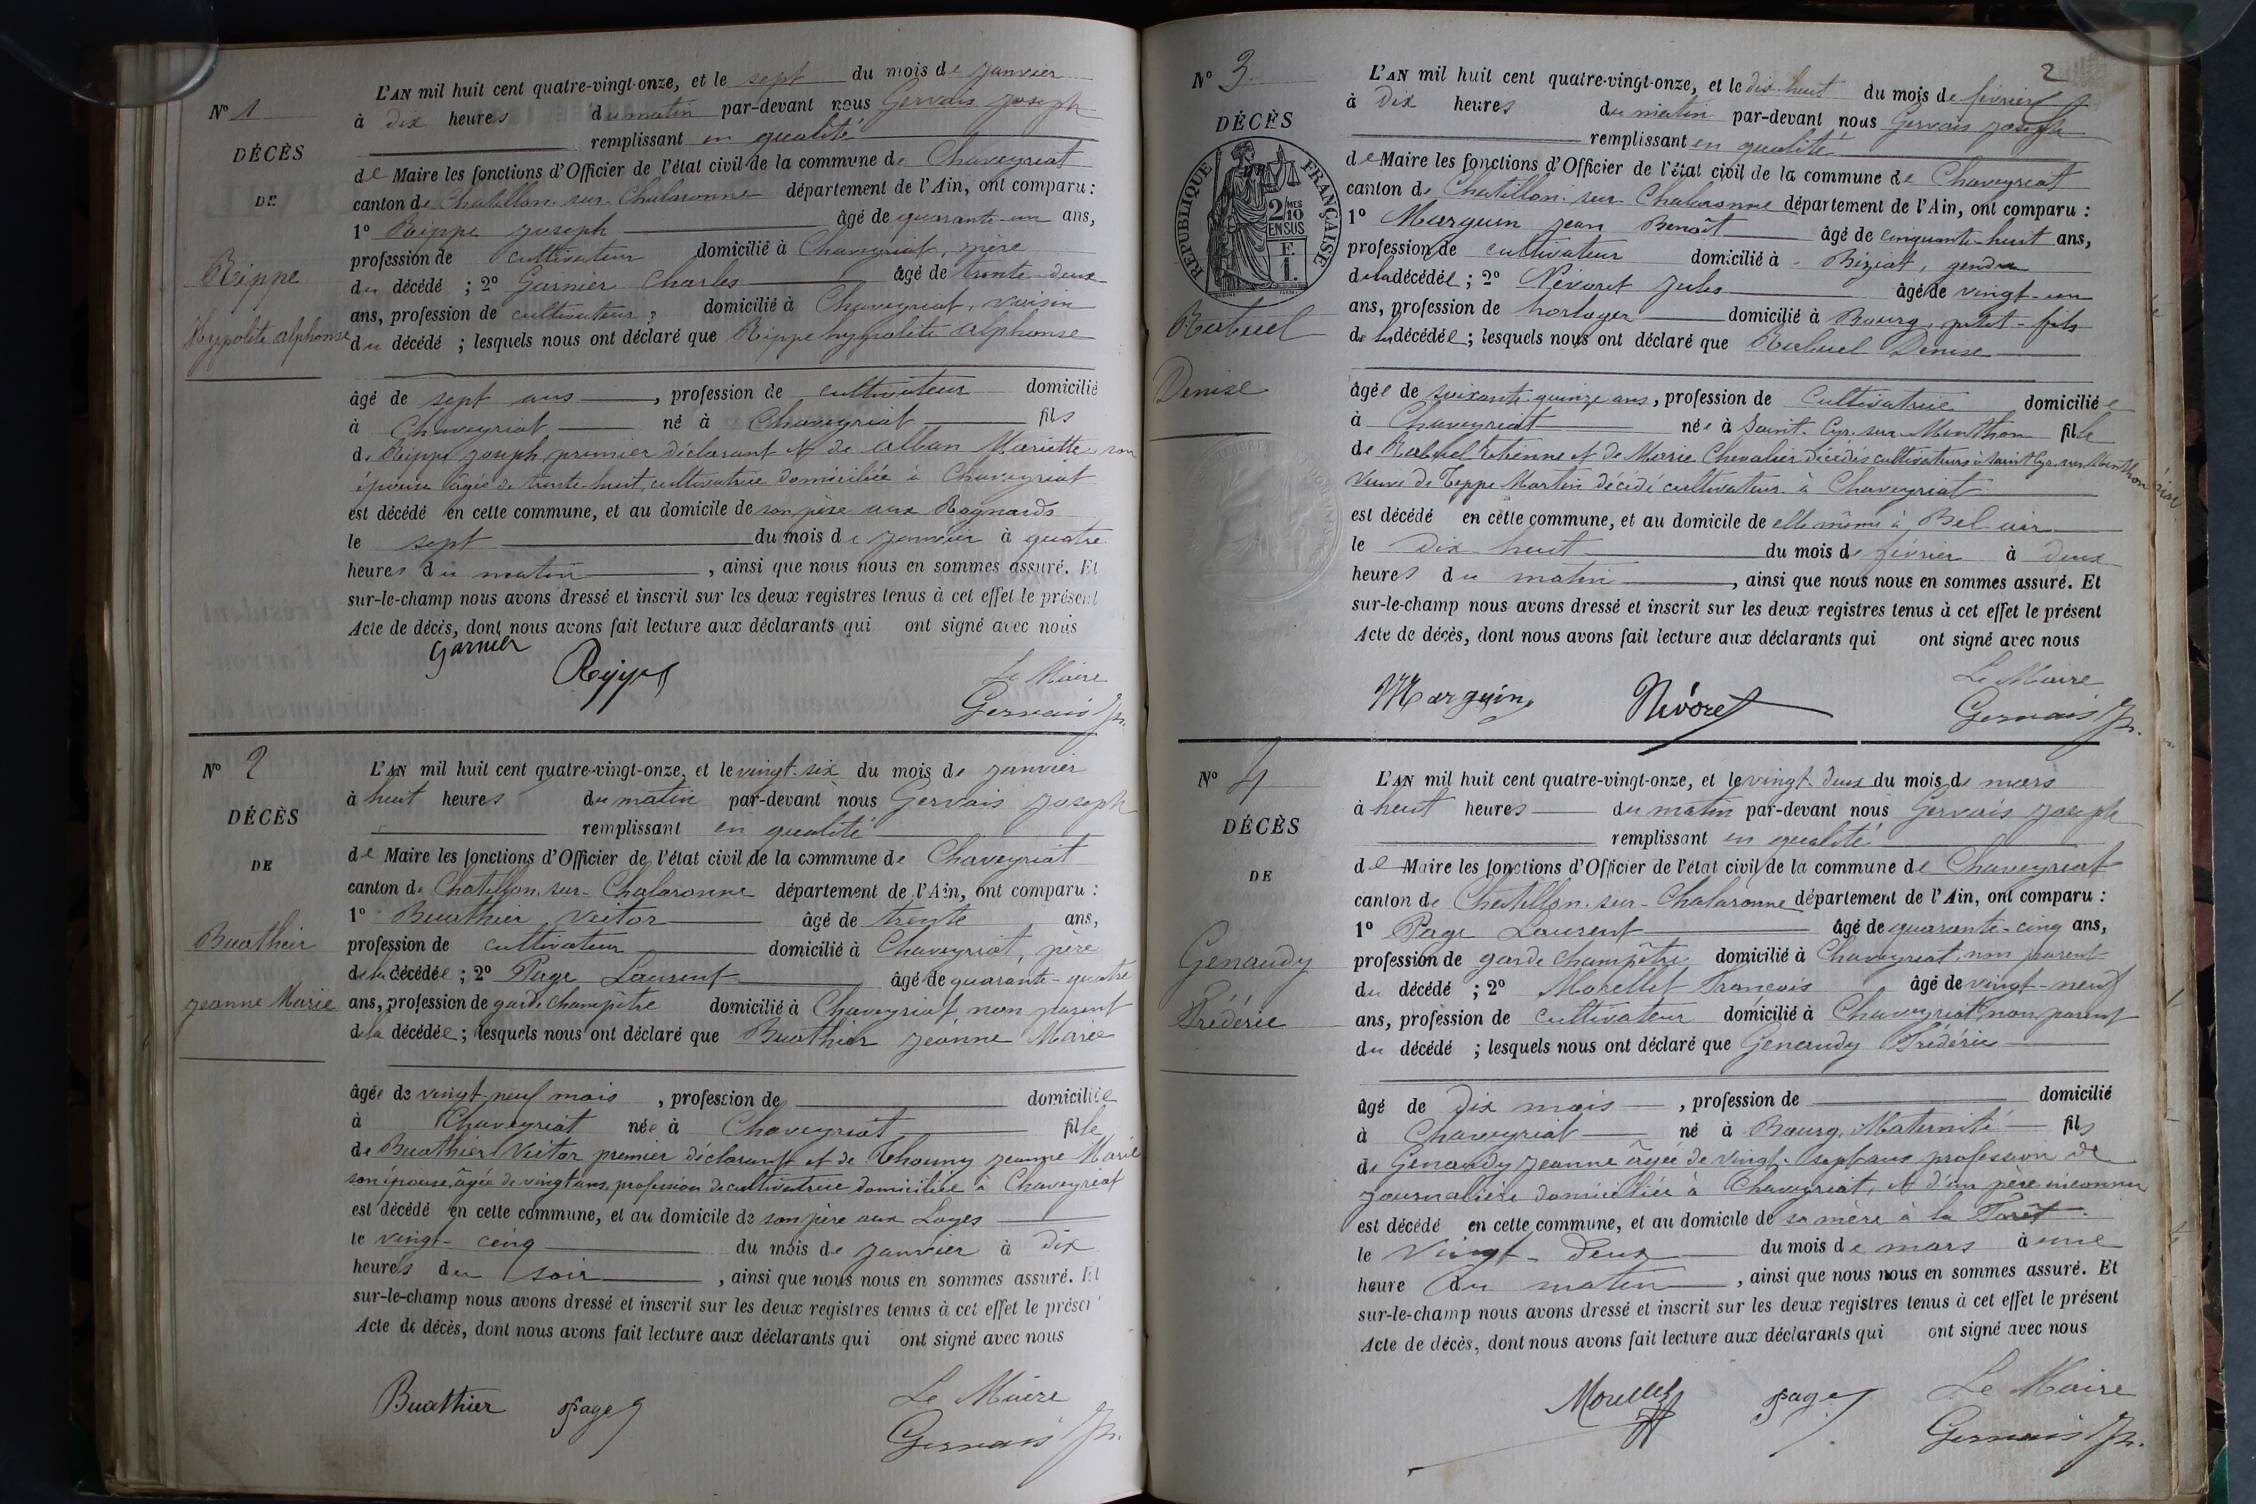 N° 1
DÉCÈS
DE
Rippe
Hyppolite alphonse
L'AN mil huit cent quatre-vingt-onze, et le sept du mois de janvier
à dix heures du matin par-devant nous Gervais Joseph
remplissant en qualité
de Maire les fonctions d'Officier de l'état civil de la commune de Chaveyriat
canton de Chatillon-sur-Chalaronne département de l'Ain, ont comparu :
1° Rippe Joseph âgé de quarante-un ans,
profession de cultivateur domicilié à Chaveyriat, père
du décédé ; 2° Garnier Charles âgé de trente-deux
ans, profession de cultivateur, domicilié à Chaveyriat, voisin
du décédé ; lesquels nous ont déclaré que Rippe hyppolite alphonse
âgé de sept ans, profession de cultivateur domicilié
à Chaveyriat né à Chaveyriat fils
de Rippe Joseph premier déclarant et de alban Mariette son
épouse âgée de trente-huit, cultivatrice domiciliée à Chaveyriat
est décédé en cette commune, et au domicile de son père aux Raynards
le sept du mois de janvier à quatre
heures du matin, ainsi que nous nous en sommes assuré. Et
sur-le-champ nous avons dressé et inscrit sur les deux registres tenus à cet effet le présent
Acte de décès, dont nous avons fait lecture aux déclarants qui ont signé avec nous
Garnier
Rippe
Le Maire
Gervais Jh.
N° 2
DÉCÈS
DE
Buathier
Jeanne Marie
L'AN mil huit cent quatre-vingt-onze, et le vingt-six du mois de janvier
à huit heures du matin par-devant nous Gervais Joseph
remplissant en qualité
de Maire les fonctions d'Officier de l'état civil de la commune de Chaveyriat
canton de Chatillon-sur-Chalaronne département de l'Ain, ont comparu :
1° Buathier Victor âgé de trente ans,
profession de cultivateur domicilié à Chaveyriat, père
de la décédée ; 2° Page Laurent âgé de quarante-quatre
ans, profession de garde champêtre domicilié à Chaveyriat, non parent
de la décédée ; lesquels nous ont déclaré que Buathier Jeanne Marie
âgée de vingt-neuf mois, profession de domiciliée
à Chaveyriat née à Chaveyriat fille
de Buathier Victor premier déclarant et de Thouny Jeanne Marie
son épouse, âgée de vingt ans, profession de cultivatrice domiciliée à Chaveyriat
est décédé en cette commune, et au domicile de son père aux Loges
le vingt-cinq du mois de janvier à dix
heures du soir, ainsi que nous nous en sommes assuré. Et
sur-le-champ nous avons dressé et inscrit sur les deux registres tenus à cet effet le présent
Acte de décès, dont nous avons fait lecture aux déclarants qui ont signé avec nous
Buathier Page
Le Maire
Gervais Jh.
2
N° 3
DÉCÈS
RÉPUBLIQUE FRANÇAISE
2/10 MES
EN SUS
F.
1.
Rabuel
Denise
L'AN mil huit cent quatre-vingt-onze, et le dix-huit du mois de février
à Dix heures du matin par-devant nous Gervais Joseph
remplissant en qualité
de Maire les fonctions d'Officier de l'état civil de la commune de Chaveyriat
canton de Chatillon-sur-Chalaronne département de l'Ain, ont comparu :
1° Marguin Jean Benoît âgé de cinquante-huit ans,
profession de cultivateur domicilié à Biziat, gendre
de la décédée ; 2° Névoret Jules âgé de vingt-un
ans, profession de horloger domicilié à Bourg, petit-fils
de la décédée ; lesquels nous ont déclaré que Rabuel Denise
âgée de soixante-quinze ans, profession de cultivatrice domiciliée
à Chaveyriat née à Saint-Cyr-sur-Menthon fille
de Rabuel Etienne et de Marie Chevalier décédés cultivateurs à Saint Cyr-sur-Menthon
Veuve de Teppe Martin décédé cultivateur à Chaveyriat
est décédé en cette commune, et au domicile de elle même à Bel-air
le Dix-huit du mois de février à deux
heures du matin, ainsi que nous nous en sommes assuré. Et
sur-le-champ nous avons dressé et inscrit sur les deux registres tenus à cet effet le présent
Acte de décès, dont nous avons fait lecture aux déclarants qui ont signé avec nous
Marguin Névoret
Le Maire
Gervais Jh.
N° 4
DÉCÈS
DE
Genaudy
Frédéric
L'AN mil huit cent quatre-vingt-onze, et le vingt-deux du mois de mars
à huit heures du matin par-devant nous Gervais Joseph
remplissant en qualité
de Maire les fonctions d'Officier de l'état civil de la commune de Chaveyriat
canton de Chatillon-sur-Chalaronne département de l'Ain, ont comparu :
1° Page Laurent âgé de quarante-cinq ans,
profession de garde champêtre domicilié à Chaveyriat, non parent
du décédé ; 2° Morellet François âgé de vingt-neuf
ans, profession de cultivateur domicilié à Chaveyriat non parent
du décédé ; lesquels nous ont déclaré que Genaudy Frédéric
âgé de Dix mois, profession de domicilié
à Chaveyriat né à Bourg, Maternité fils
de Genaudy Jeanne âgée de vingt-sept ans profession de
journalière domiciliée à Chaveyriat, et d'un père inconnu
est décédé en cette commune, et au domicile de sa mère à la Forêt
le Vingt-Deux du mois de mars à une
heure du matin, ainsi que nous nous en sommes assuré. Et
sur-le-champ nous avons dressé et inscrit sur les deux registres tenus à cet effet le présent
Acte de décès, dont nous avons fait lecture aux déclarants qui ont signé avec nous
Morellet Page
Le Maire
Gervais Jh.